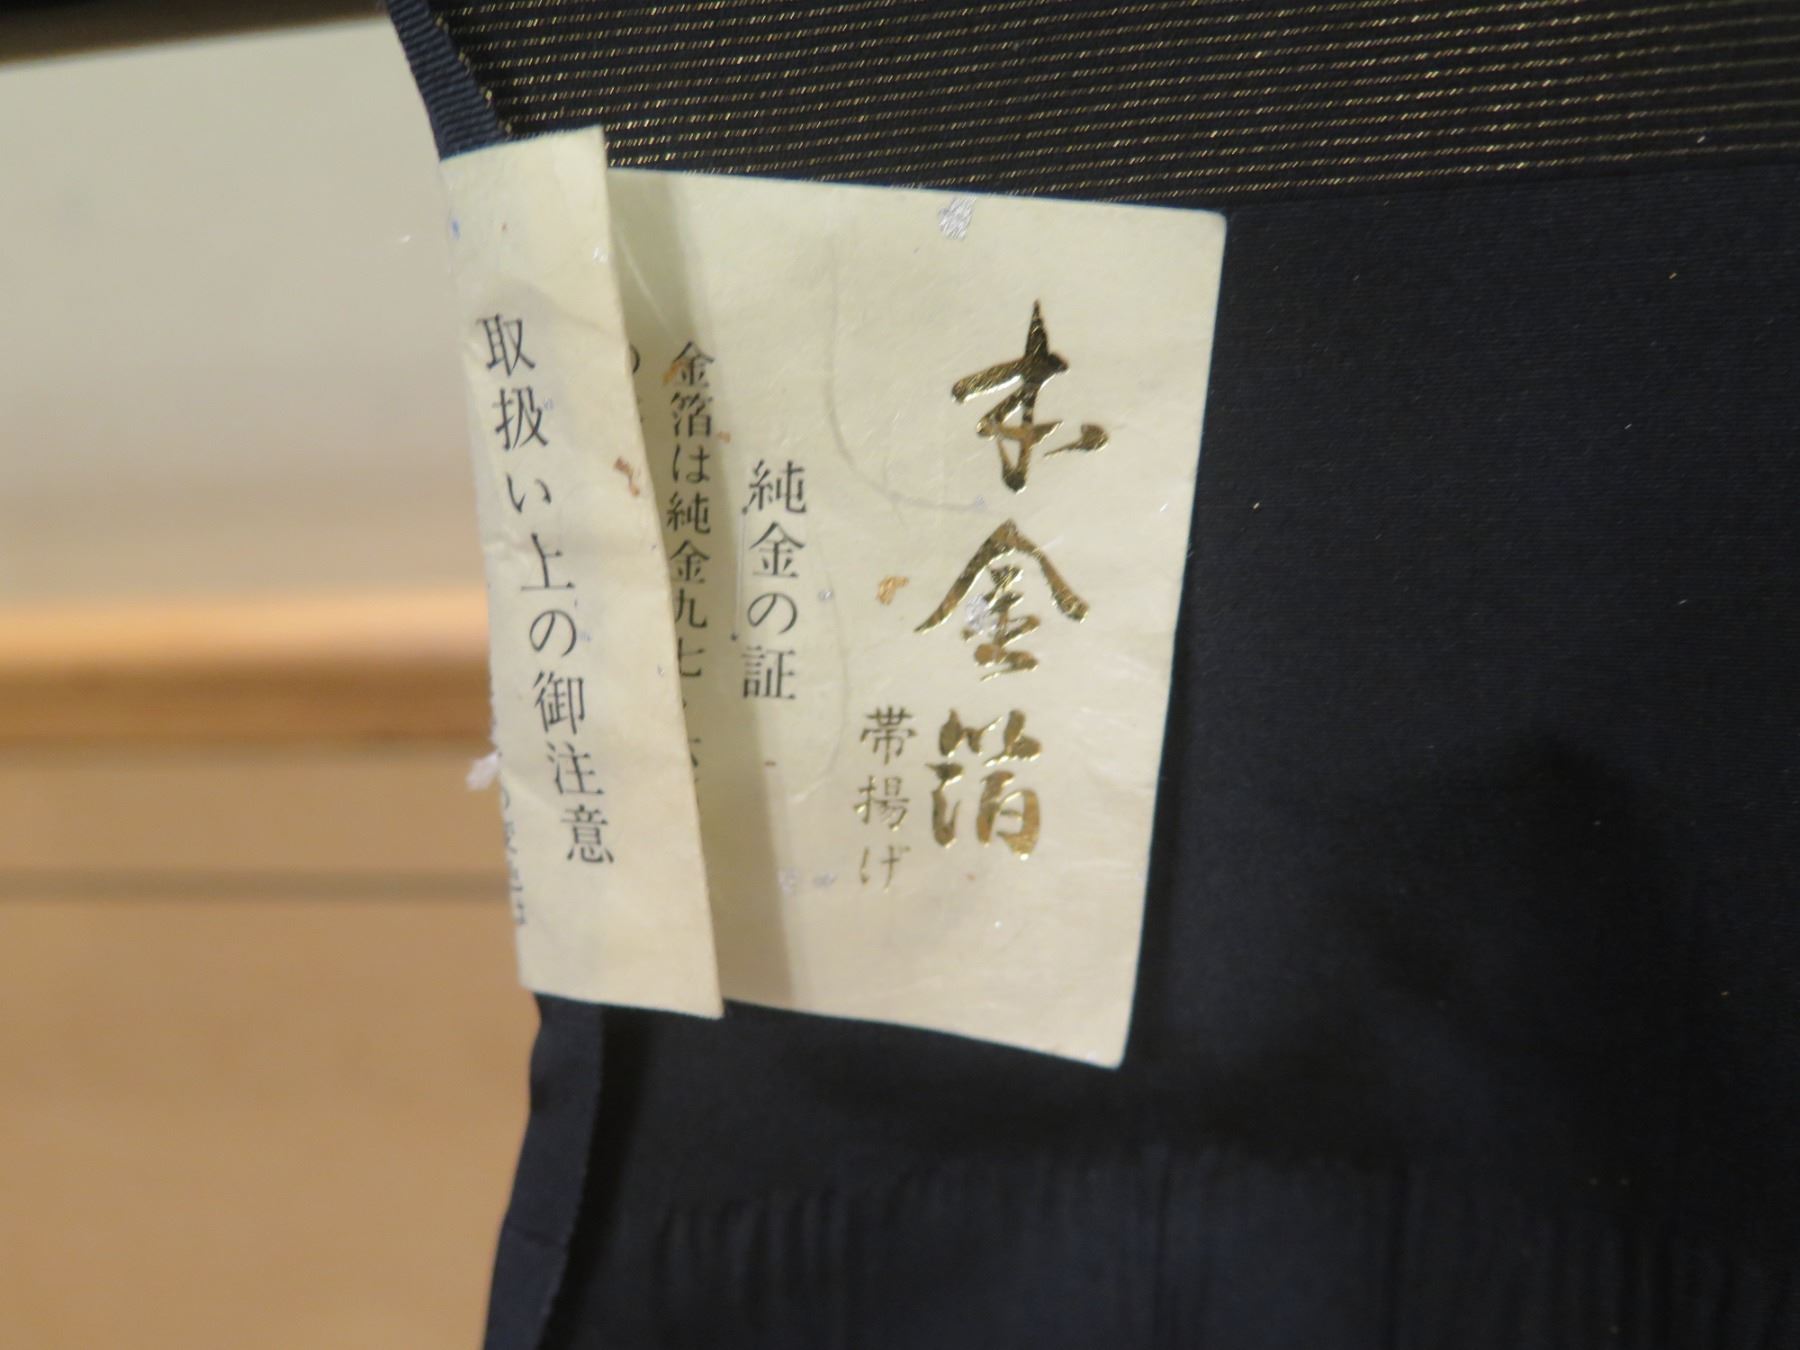 本金箔
帯揚げ
純金の証
金箔は純金九七
取扱い上の御注意